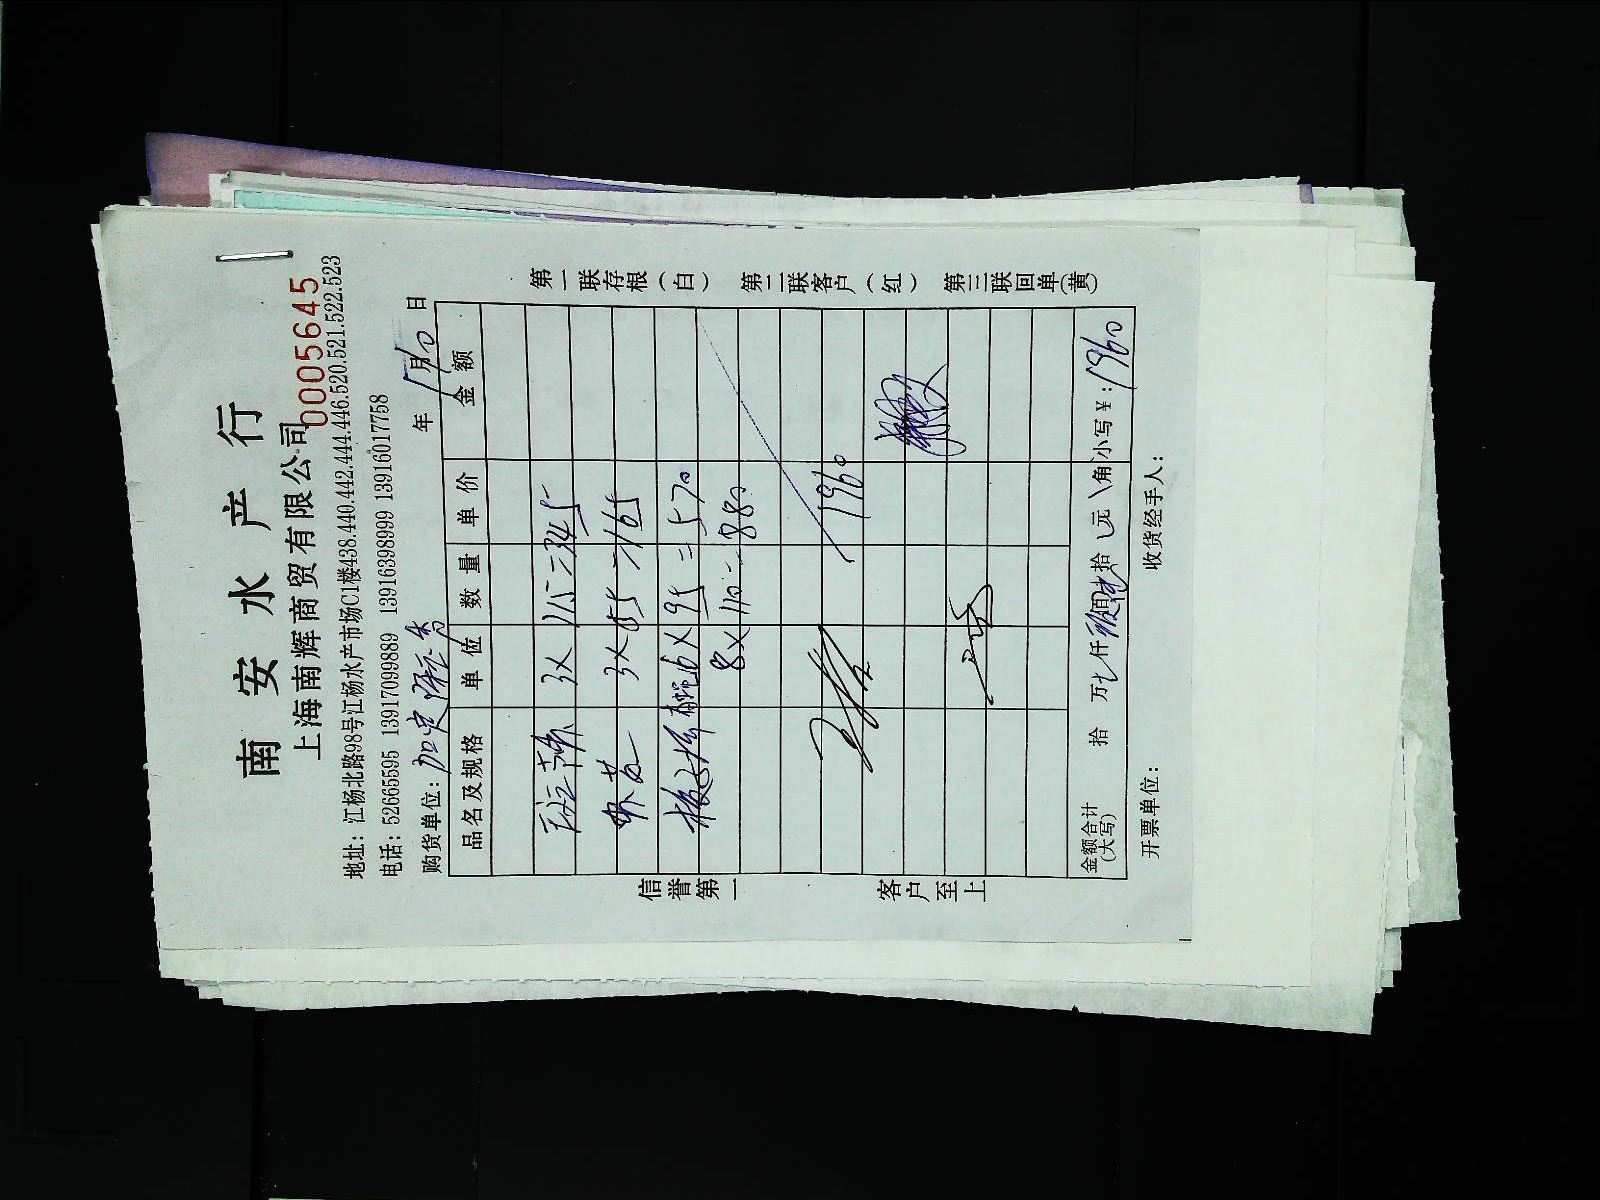 南安水产行
上海南辉商贸有限公司
0005645
地址：江杨北路98号江杨水产市场C1楼438.440.442.444.446.520.521.522.523
电话：52665595 13917099889 13916398999 13916017758
购货单位： 年 月10日
品名及规格 单位 数量 单价 金额
3X 115=345
3X 55=165
6X95=570
8X110=880
1960
金额合计（大写） 拾 万 七 仟 佰 拾 元 角 小写￥：1960
开票单位： 收货经手人：
信誉第一 客户至上
第一联存根（白） 第二联客户（红） 第三联回单（黄）